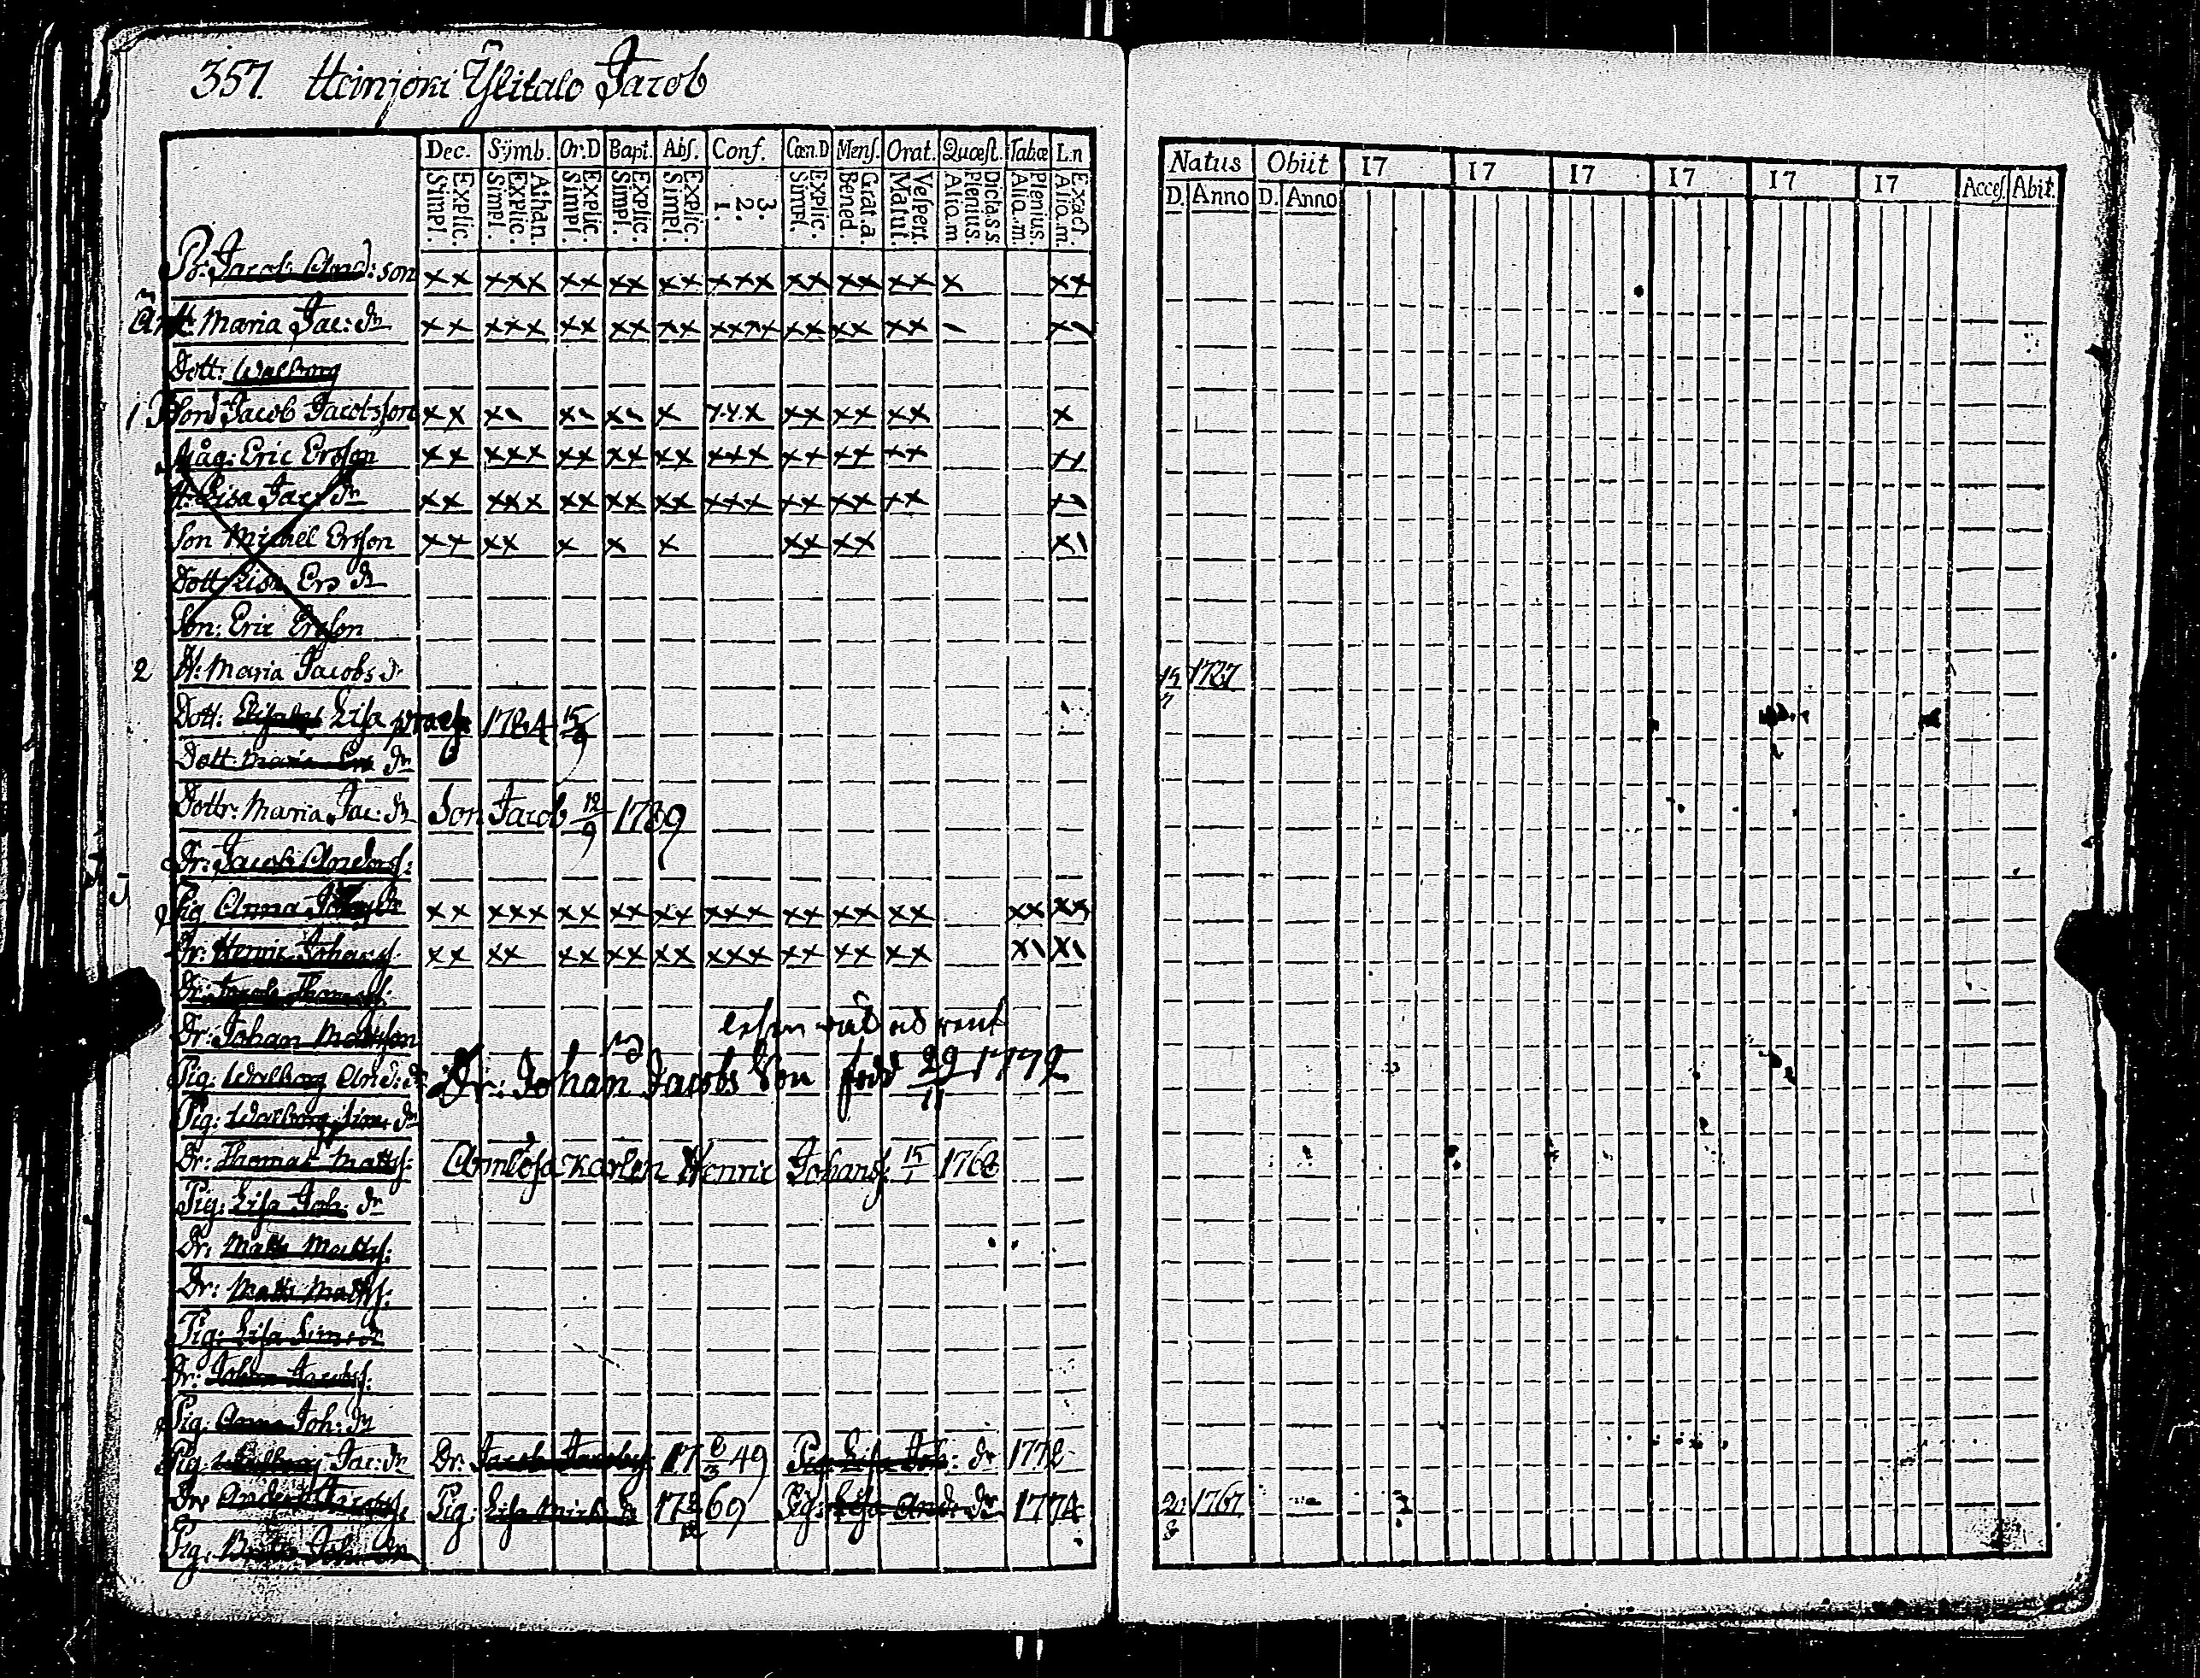 357. Heinjoki Ÿlitalo Jacob
Dec. Sÿmb. Or.D Bapt. Abſ. Conf. Cœn.D Menſ. Orat. Quœſt. Tabœ L.n
Explic. Simpl. Athan. Explic. Simpl. Explic. Simpl. Explic. Simpl. Explic. Simpl. 3. 2. 1. Explic. Simpl. Grat.a. Bened. Veſpert. Matut. Dicta.s.s. Plenius. Aliq.m Plenius. Aliq.m. Exact. Aliq.m.
Natus Obiit 17 17 17 17 17 17 Acceſ. Abit.
D. Anno D. Anno
Jacob And: son xx xxx xx xx xx xxx xx xx xx x xx
H: Maria Jac: dr xx xxx xx xx xx xxxx xx xx xx - x
Dott: Walborg
1 Son Jacob Jacobsson xx x x x x xxx xx xx xx x
Måg: Eric Ersson xx xxx xx xx xx xxx xx xx xx xx
H: Lisa Jac: dr xx xxx xx xx xx xxx xx xx xx x
Son Michel Ersson xx xx x x x xx xx x
Dott Lisa Ers dr
Son: Eric Ersson
2 H: Maria Jacobs dr 1727
Dott: Lisa 1784 15/9
Dott Maria Ers dr
Dottr: Maria Jac: dr Son Jacob 12/9 1789
Dr: Jacob Anderss:
Pig Anna xx xxx xx xx xx xxx xx xx xx xx xx
Dr: Henric Johanss. xx xx xx xx xx xxx xx xx xx x x
Dr: Jacob Thomass:
Dr: Johan Mattsson
Pig: Walborg And: dr Dr: Johan Jacobs Son född 29/11 1772
Pig: Walborg Sim: dr
Dr: Thomas Matts: Armlösa Karlen Henric Johanss. 15/1 1768
Pig: Lisa Joh: dr
Dr: Matts Matts:
Dr: Matts Matts:
Pig: Lisa Sim: dr
Dr: Johan Jacobs:
Pig: Anna Joh: dr
Pig: Walborg Jac: dr Dr: Jacob 17 49 Pig: Lisa Joh: dr 1772
Dr: Anders Pig: Lisa Mich: dr 17 69 Pig: Lisa And: dr 1774 1767
Pig: